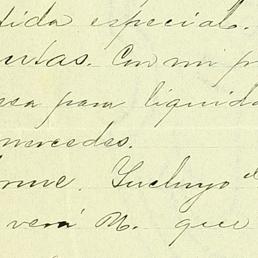 tida especial.
utas. Con mi p
esa para liquida
mercedes.
rme. Incluyo el
verá M. que